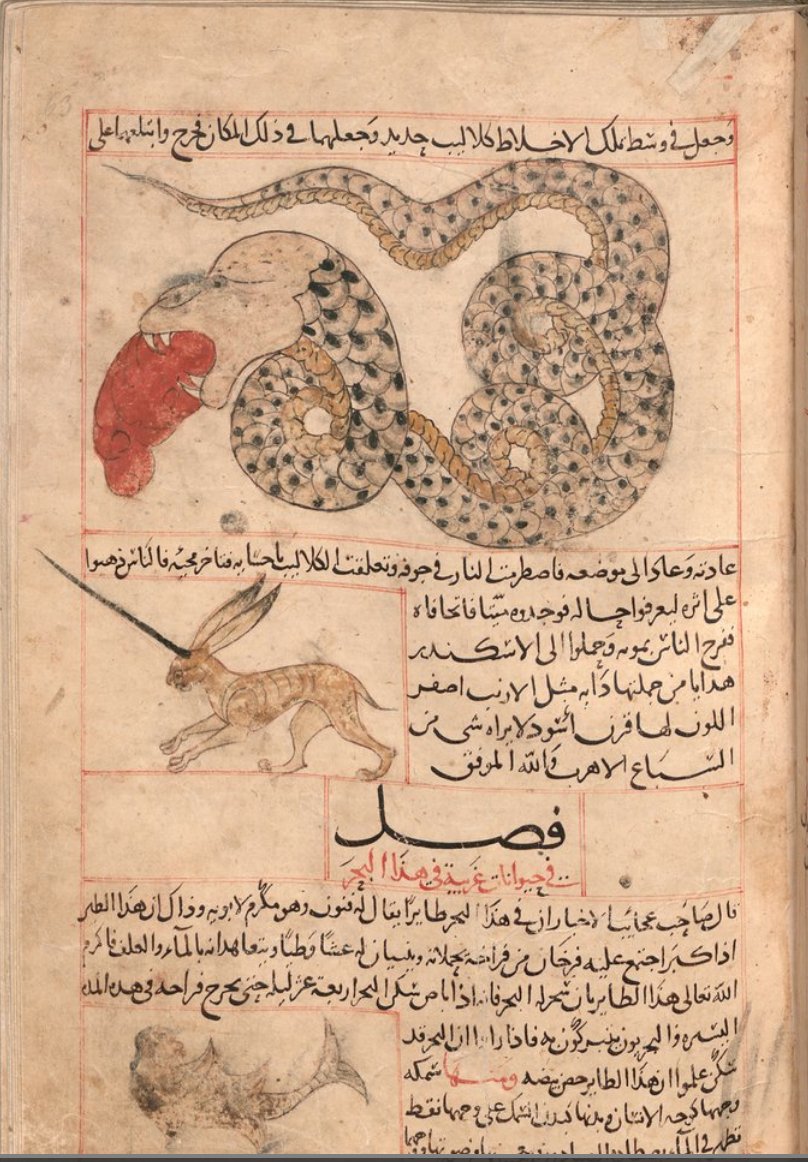 وجعل في وسط تلك الاخلاط كلاليب حديد وجعلهما في ذلك المكان فخرج وابتلعهما على
عادته وعاد الى موضعه فاضطرمت النار في جوفه وتعلقت الكلاليب باحشابه فتاخر مجيه فالناس ذهبوا
على اثره ليعرفوا حاله فوجدوه ميتا فاتحا فاه
ففرح الناس بموته وحملوا الى الاسكندر
هدايا من جملتها دابه مثل الارنب اصفر
اللون لها قرن اسود لا يراه شى من
السباع الا هرب والله الموفق
فصل
في حيوانات غريبة في هذا البحر
قال صاحب عجايب الاخبار ان في هذا البحر طايرا يقال له فنون وهو مكرم لابويه وذاك ان هذا الطير
اذا كبرا اجتمع عليه فرخان من فراخه يحملانه ويبنيان له عشا وطيا ويتعاهدانه بالمآء والعلف فاكرم
الله تعالى هذا الطاير بان سخر له البحر فانه اذا باض سكن البحر اربعة عشر ليله حتى يخرج فراخه في هذه المده
اليسيره والبحريون يتبركون به فاذا راوا ان البحر قد
سكن علموا ان هذا الطاير حضن بيضه ومنها سمكه
وجهها كوجه الانسان وبدنها كبدن السمك على وجهها نقط
تظهر في المآء